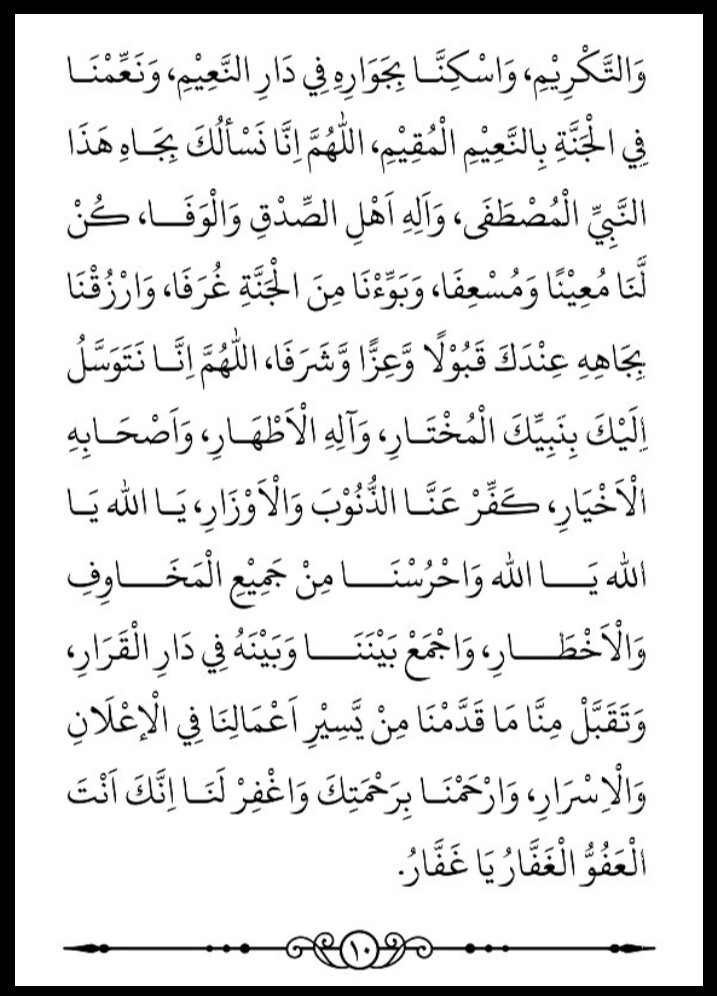 وَالتَّكْرِيْمِ، وَاسْكِنَّا بِجَوَارِهِ فِي دَارِ النَّعِيْمِ، وَنَعِّمْنَا
فِي الْجَنَّةِ بِالنَّعِيْمِ الْمُقِيْمِ، اللّٰهُمَّ اِنَّا نَسْأَلُكَ بِجَاهِ هَذَا
النَّبِيِّ الْمُصْطَفَى، وَآلِهِ اَهْلِ الصِّدْقِ وَالْوَفَا، كُنْ
لَّنَا مُعِيْنًا وَمُسْعِفَا، وَبَوِّءْنَا مِنَ الْجَنَّةِ غُرَفَا، وَارْزُقْنَا
بِجَاهِهِ عِنْدَكَ قَبُوْلًا وَّعِزًّا وَّشَرَفَا، اللّٰهُمَّ اِنَّا نَتَوَسَّلُ
اِلَيْكَ بِنَبِيِّكَ الْمُخْتَارِ، وَآلِهِ الْاَطْهَارِ، وَاَصْحَابِهِ
الْاَخْيَارِ، كَفِّرْ عَنَّا الذُّنُوْبَ وَالْاَوْزَارِ، يَا الله يَا
الله يَا الله وَاحْرُسْنَا مِنْ جَمِيْعِ الْمَخَاوِفِ
وَالْاَخْطَارِ، وَاجْمَعْ بَيْنَنَا وَبَيْنَهُ فِي دَارِ الْقَرَارِ،
وَتَقَبَّلْ مِنَّا مَا قَدَّمْنَا مِنْ يَّسِيْرِ اَعْمَالِنَا فِي الْاِعْلَانِ
وَالْاِسْرَارِ، وَارْحَمْنَا بِرَحْمَتِكَ وَاغْفِرْ لَنَا اِنَّكَ اَنْتَ
الْعَفُوُّ الْغَفَّارُ يَا غَفَّارُ.
١٠